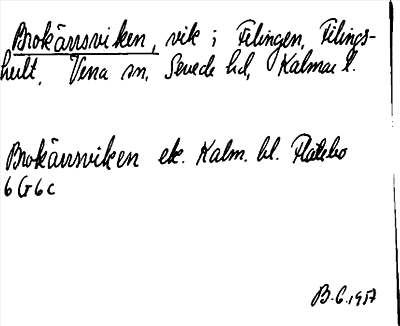 Brokärrsviken, vik i Filingen, Filings-
hult, Vena sn, Sevede hd, Kalmar l.
Brokärrsviken ek. Kalm. bl. Flatebo
6 G 6 c
B.G. 1957